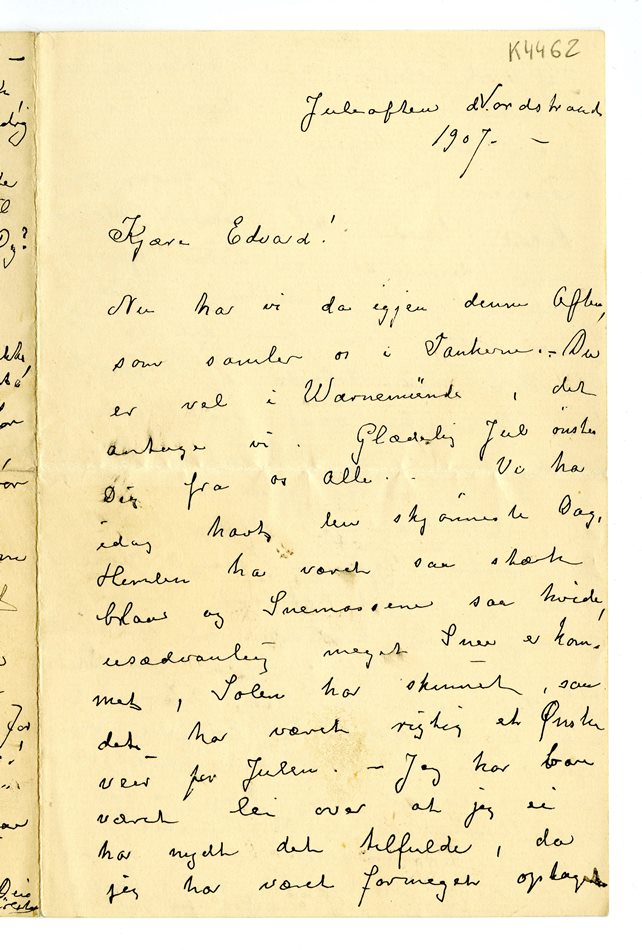 K4462
Juleaften Nordstrand
1907. –
Kjære Edvard!
Nu har vi da igjen denne Aften,
som samler os i Tankerne. – Du
er vel i Warnemünde, det
antage vi. Glædelig Jul ønskes
Dig fra os alle. . Vi ha
idag havt den skjønneste Dag,
Himlen ha været saa stærk
blaa og Snemassene saa hvide,
usædvanlig meget Snee er kom-
met, Solen har skinnet, saa
det har været rigtig et Ønske
veir for Julen. – Jeg har bare
været lei over at jeg ei
har nydt det tilfulde, da
jeg har været formeget optaget